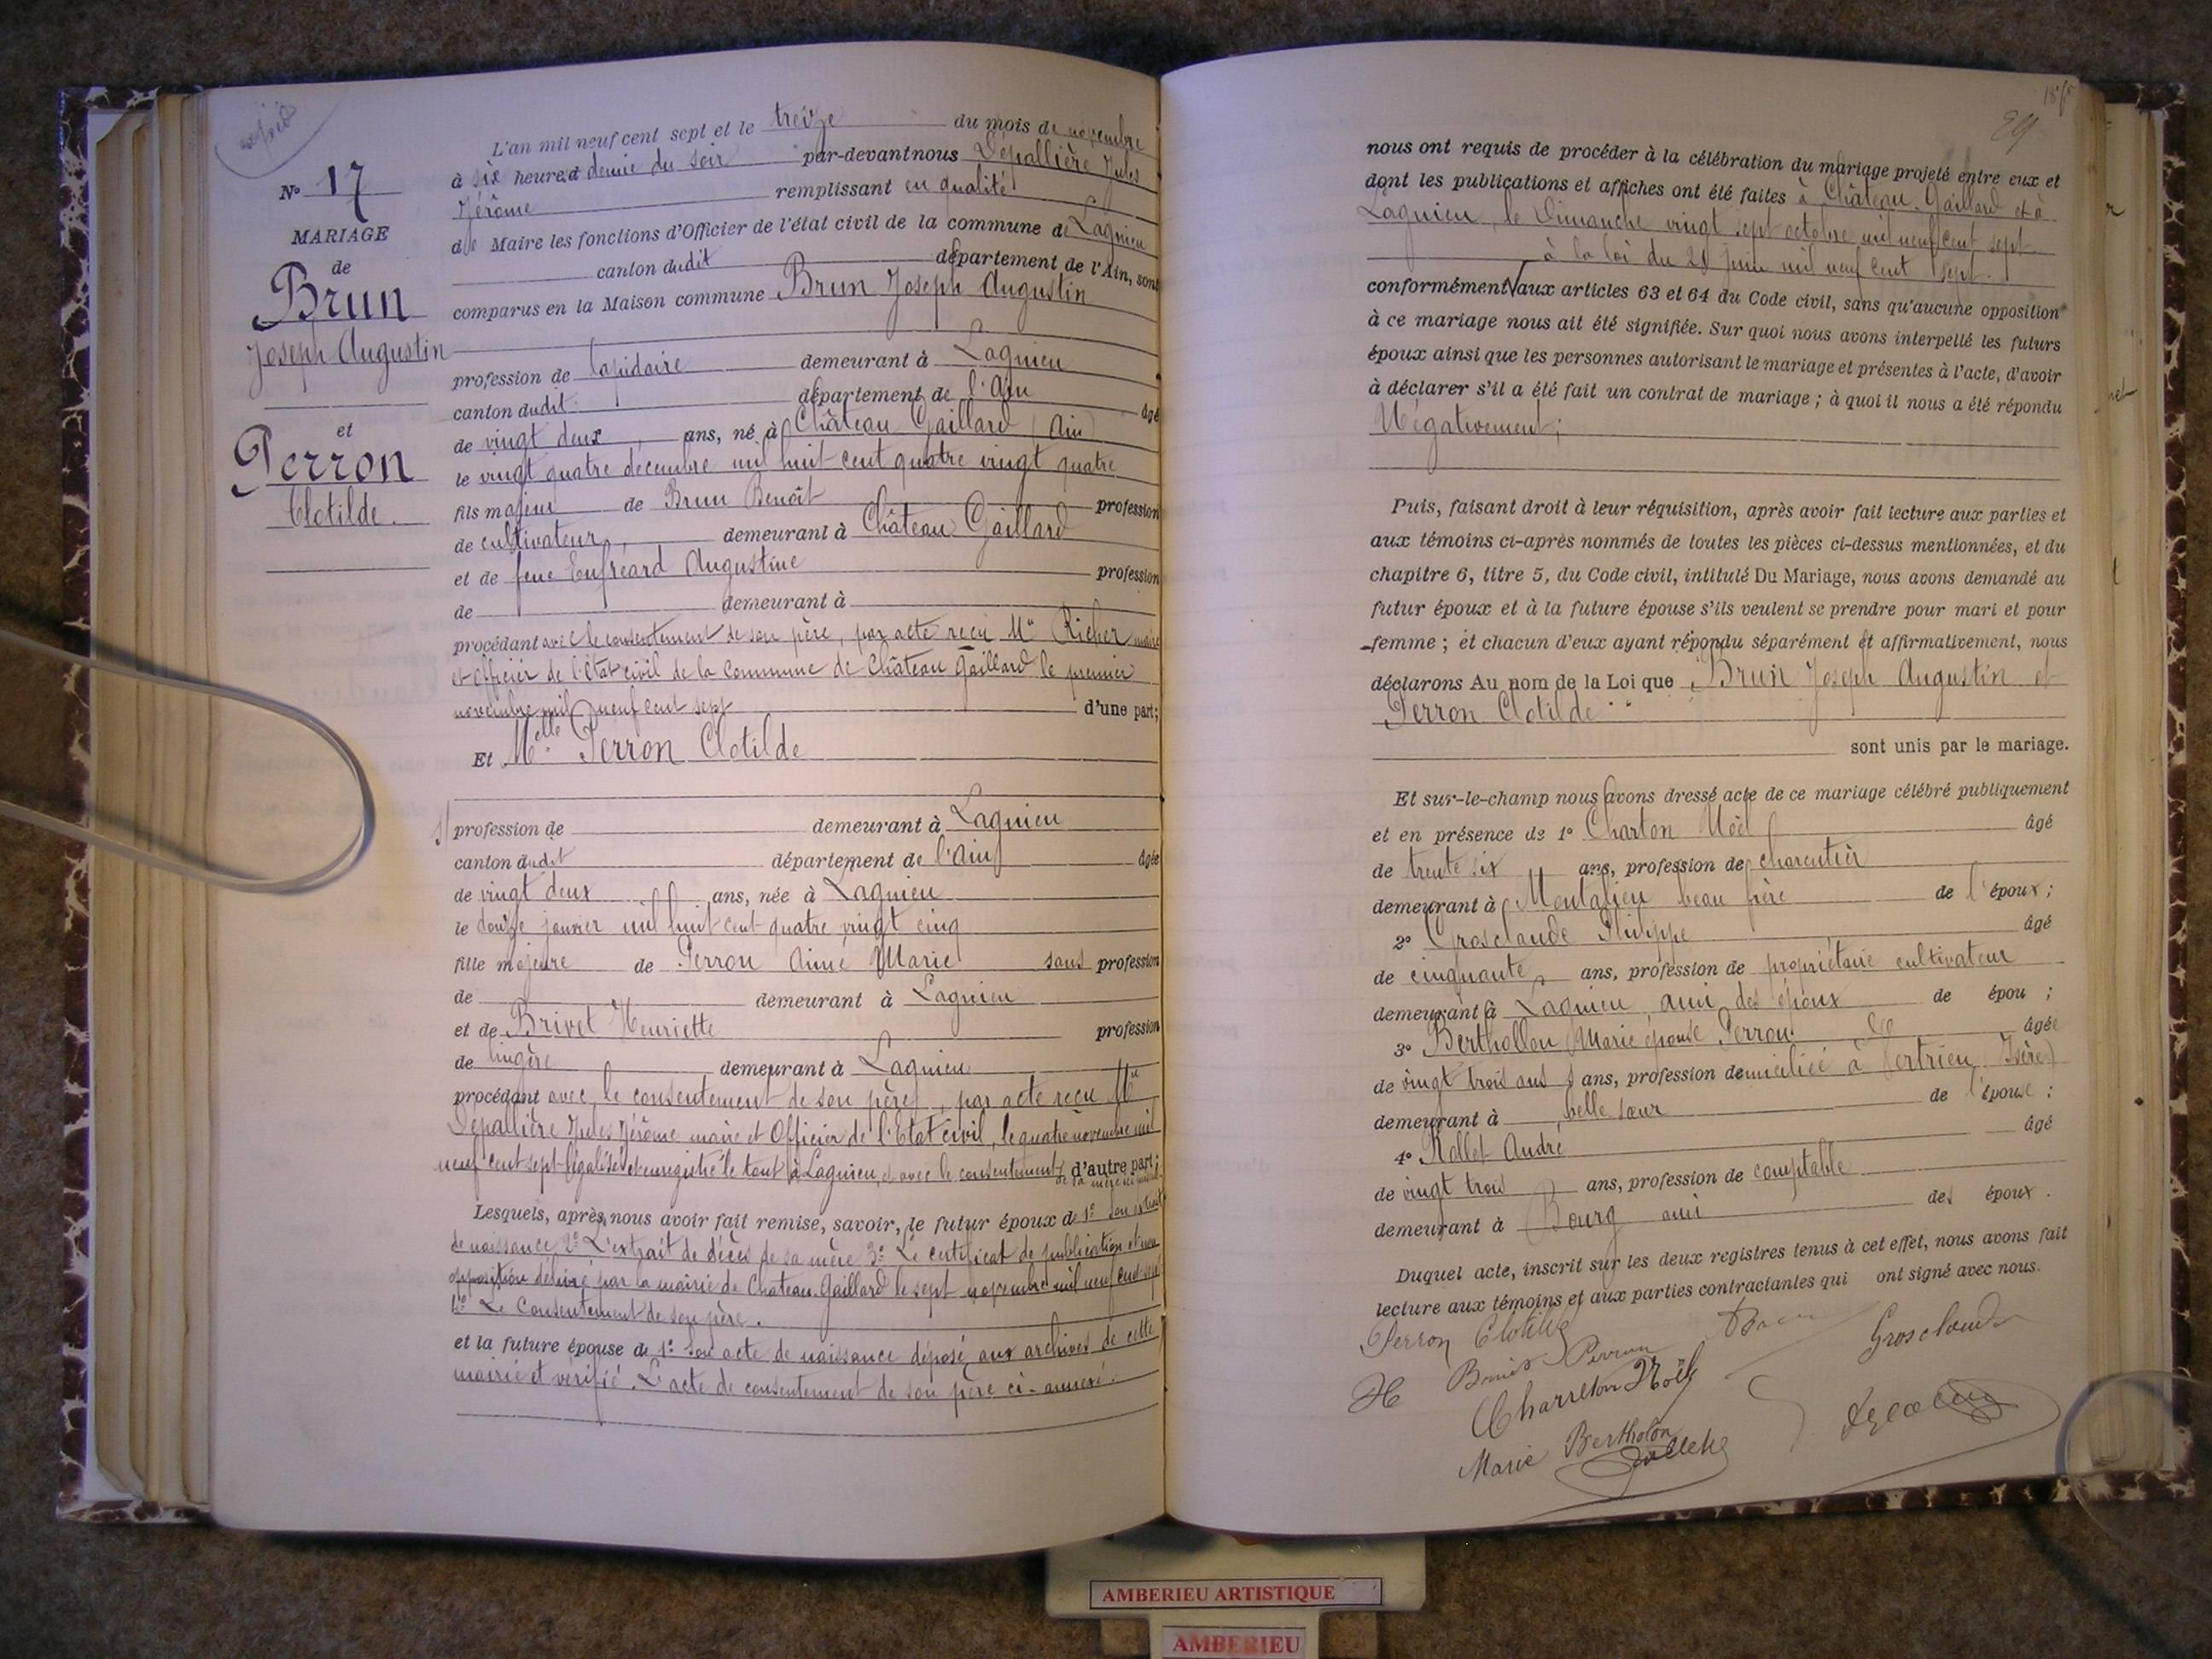 29
N° 17
MARIAGE
de
Brun
Joseph Augustin
et
Perron
Clotilde.
L'an mil neuf cent sept et le treize du mois de novembre
à six heures et demie du soir par-devant nous Dépallière Jules
Jérôme remplissant en qualité
de Maire les fonctions d'Officier de l'état civil de la commune de Lagnieu
canton dudit département de l'Ain, sont
comparus en la Maison commune Brun Joseph Augustin
profession de lapidaire demeurant à Lagnieu
canton dudit département de l'Ain âgé
de vingt deux ans, né à Château Gaillard (Ain)
le vingt quatre décembre mil huit cent quatre vingt quatre
fils majeur de Brun Benoît profession
de cultivateur demeurant à Château Gaillard
et de feue Enfréard Augustine profession
de demeurant à
procédant avec le consentement de son père, par acte reçu Me Richer maire
et officier de l'état civil de la commune de Château Gaillard le premier
novembre mil neuf cent sept d'une part;
Et Melle Perron Clotilde
profession de demeurant à Lagnieu
canton dudit département de l'Ain âgée
de vingt deux ans, née à Lagnieu
le douze janvier mil huit cent quatre vingt cinq
fille majeure de Perron Aimé Marie sans profession
de demeurant à Lagnieu
et de Brivet Henriette profession
de lingère demeurant à Lagnieu
procédant avec le consentement de son père, par acte reçu Me
Dépallière Jules Jérôme maire et Officier de l'Etat civil, le quatre novembre mil
neuf cent sept légalisé et enregistré le tout à Lagnieu, et avec le consentement d'autre part;
de sa mère
Lesquels, après nous avoir fait remise, savoir, le futur époux de 1° son extrait
de naissance 2° L'extrait de décès de sa mère 3° Le certificat de publication et non
opposition délivré par la mairie de Chateau Gaillard le sept novembre mil neuf cent sept
4° Le Consentement de son père.
et la future épouse de 1° Son acte de naissance déposé aux archives de cette
mairie et vérifié. L'acte de consentement de son père ci-annexé.
nous ont requis de procéder à la célébration du mariage projeté entre eux et
dont les publications et affiches ont été faites à Château-Gaillard et à
Lagnieu, le Dimanche vingt sept octobre mil neuf cent sept
à la loi du 21 juin mil neuf cent sept.
conformément aux articles 63 et 64 du Code civil, sans qu'aucune opposition
à ce mariage nous ait été signifiée. Sur quoi nous avons interpellé les futurs
époux ainsi que les personnes autorisant le mariage et présentes à l'acte, d'avoir
à déclarer s'il a été fait un contrat de mariage ; à quoi il nous a été répondu
Négativement;
Puis, faisant droit à leur réquisition, après avoir fait lecture aux parties et
aux témoins ci-après nommés de toutes les pièces ci-dessus mentionnées, et du
chapitre 6, titre 5, du Code civil, intitulé Du Mariage, nous avons demandé au
futur époux et à la future épouse s'ils veulent se prendre pour mari et pour
femme ; et chacun d'eux ayant répondu séparément et affirmativement, nous
déclarons Au nom de la Loi que Brun Joseph Augustin et
Perron Clotilde
sont unis par le mariage.
Et sur-le-champ nous avons dressé acte de ce mariage célébré publiquement
et en présence de 1° Charton Noël âgé
de trente six ans, profession de charcutier
demeurant à Montalieu beau frère de l'époux ;
2° Grosclaude Philippe âgé
de cinquante ans, profession de propriétaire cultivateur
demeurant à Lagnieu ami des époux de épou ;
3° Berthollon Marie épouse Perron âgée
de vingt trois ans ans, profession domiciliée à Vertrieu (Isère)
demeurant à belle sœur de l'épouse ;
4° Rollet André âgé
de vingt trois ans, profession de comptable
demeurant à Bourg ami des époux.
Duquel acte, inscrit sur les deux registres tenus à cet effet, nous avons fait
lecture aux témoins et aux parties contractantes qui ont signé avec nous.
Perron Clotilde Brun Grosclaude
H Brivet Perron
Charreton Noël
Marie Bertholon
AMBERIEU ARTISTIQUE
AMBERIEU